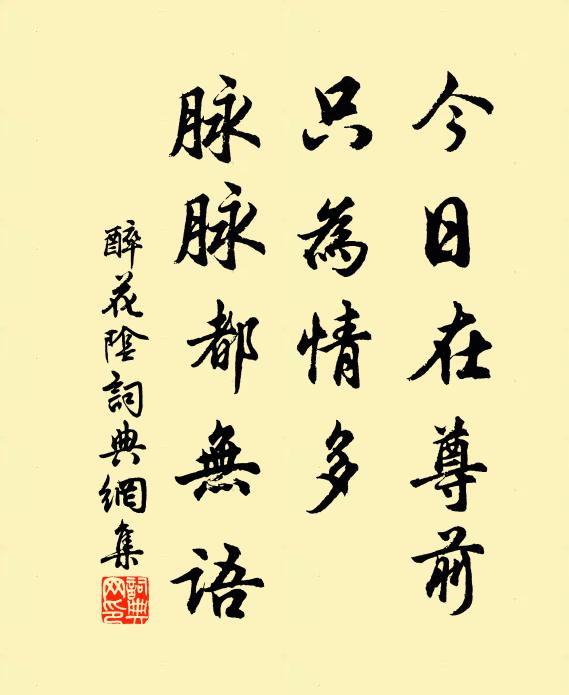 今日在尊前
只為情多
脉脉都無語
醉花陰詞典網集
詞典网印